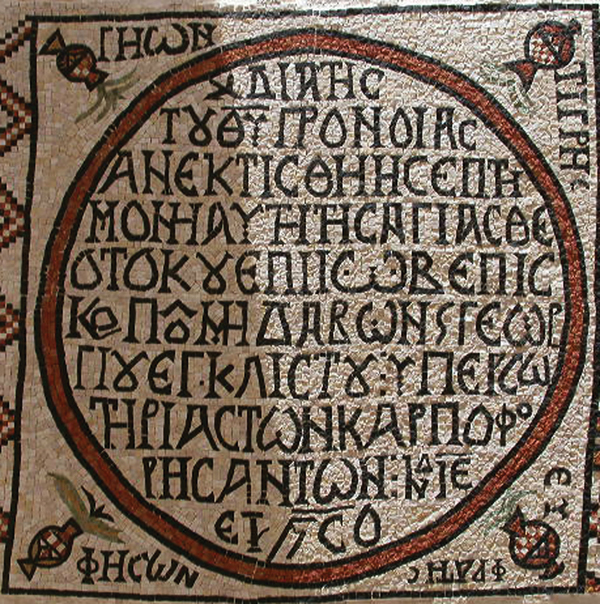 ΓΗΩΝ
ΤΙΓΡΗϹ
ΔΙΑ ΤΗϹ
ΤȢ ΘΥ ΠΡΟΝΟΙΑϹ
ΑΝΕΚΤΙϹΘΗ Η ϹΕΠΤΗ
ΜΟΝΗ ΑΥΤΗ ΤΗϹ ΑΓΙΑϹ ΘΕ
ΟΤΟΚȢ ΕΠΙ ΙΩΒ ΕΠΙϹ
ΚΟΠΟΥ ΜΑΔΑΒΩΝ Ϛ ΓΕΩΡ
ΓΙȢ ΕΓΚΛΙϹΤȢ : ΥΠΕΡ ϹΩ
ΤΗΡΙΑϹ ΤΩΝ ΚΑΡΠΟΦΟ
ΡΗϹΑΝΤΩΝ : ΙΕ
ΕΤ ϹΟ
ΦΗϹΩΝ